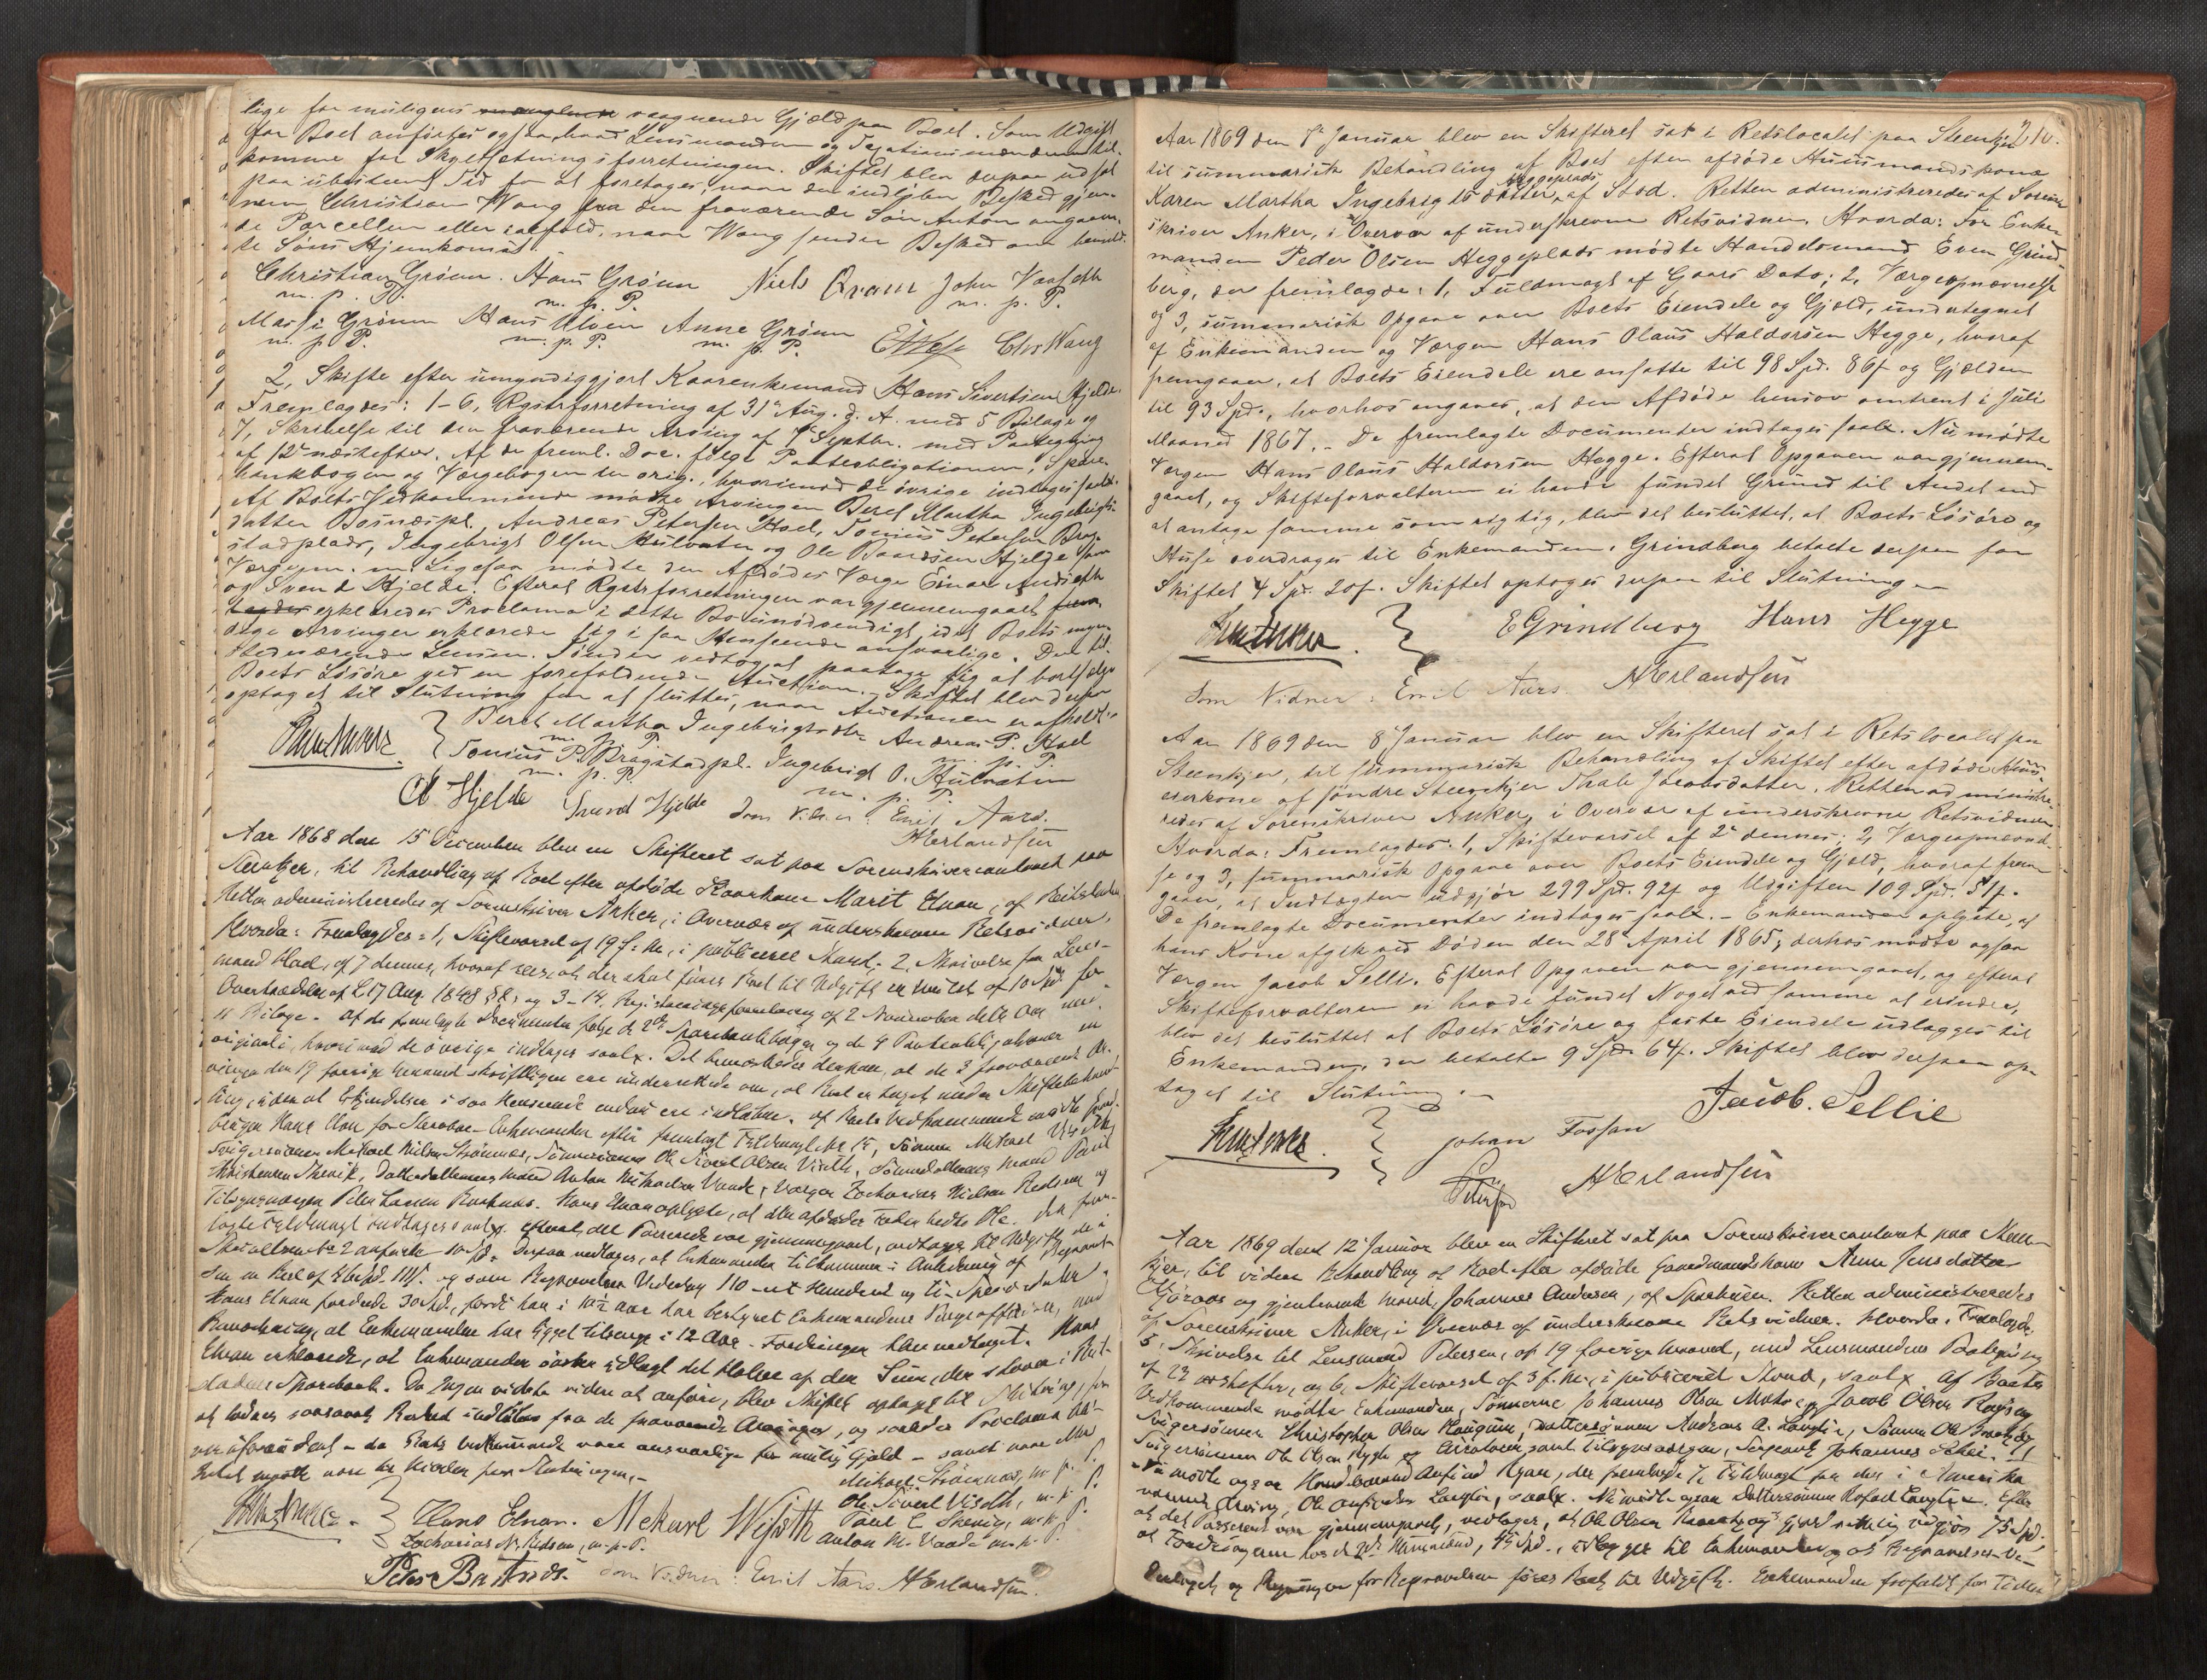 lige for muligens manglende vaagnende Gjæld paa Boet. Som Udgift
for Boet anføres ogsaa, hvad Lensmanden og Taxationsmændene til-
komme for Skyldsætningsforretningen. Skiftet blev derpaa udsat
paa ubestemt Tid for at foretages, naar der indløber Besked gjen-
nem Christian Wang fra den fraværende Søn Anton angaaen-
de Parcellen eller isafald, naar Wang sender Besked om bemeld-
te Søns Hjemkomst.
Christian Grønn. Hans Grønn Niels Qvam John Vaafeth
m. p. P. m. p. P. m. p. P.
Massi Grønn Hans Ulven Anne Grønn Chr Wang
m. p. P. m. p. P. m. p. P.
2, Skifte efter umyndiggjort Kaarenkemand Hans Sivertsen Hjelde.
Fremlagdes: 1-6, Rgstrforretning af 31te Aug. d. A. med 5 Bilage og
7, Skrivelse til den fraværende Arving af 7de Septbr. med Paategning
af 12te næstefter. Af de freml. Doc. følge Panteobligationen, Spare-
bankbogen og Værgebogen in orig., hvorimod de øvrige indtages saal.
Af Boets Vedkommende mødte Arvingen Beret Martha Ingebrigts-
datter Bosnæspl., Andreas Petersen Hoel, Tonius Petersen Brag-
stadplads, Ingebrigt Olsen Hulvatn og Ole Baardsen Hjelde som
Værge m. m. Ligesaa mødte den Afdødes Værge Einar
og Svend Hjelde. Efterat Rgstrforretningen var gjennemgaaet
erklæredes Proclama i dette Bo unødvendigt, idet Boets myn-
dige Arvinger erklærede sig i saa Henseende ansvarlige. Den til-
stedeværende Lensm. Sønder vedtog at paatage sig at bortsælge
Boets Løsøre ved en forefaldende Auction. Skiftet blev derpaa
optaget til Slutning for at sluttes, naar Auctionen er afholdt.
Beret Martha Ingebrigtsdtr Andreas P. Hoel
m. p. P. m. p. P.
Tonius P. Bragstadpl. Ingebrigt O. Hulvatn
m. p. P. m. p. P.
Hjelde Svend Hjelde Som Vidner: Emil Aars.
AErlandsen
Aar 1868 den 15 December blev en Skifteret sat paa Sorenskrivercontoret paa
Steenkjer, til Behandling af Boet efter afdøde Kaarkone Marit Elnan, af
Retten administreredes af Sorenskriver Anker, i Overvær af underskrevne Retsvidner.
Hvorda: Fremlagdes: 1, Skiftevarsel af 19 f. M., i publiceret Stand; 2, Skrivelse fra Lens-
mand af 7 dennes, hvoraf sees, at der skal føres Boet til Udgift en Mulct af 10 Spd for
Overtrædelse af L 17 Aug. 1848 § 8; og 3-14, Registreringsforretning af 2 November dette Aar m.
11 Bilage. Af de fremlagte Documenter følge de 2de Sparebankbøger og de 4 Panteobligationer in
originali, hvorimod de øvrige indtages saalx. Det bemærkedes derpaa, at de 3 fraværende Ar-
vinger den 19 forrige Maaned skriftligen ere underrettede om, at Boet er taget under Skiftebehand-
ling, uden at Erkjendelser i saa Henseende endnu ere indløbne. Af Boets Vedkommende mødte
Hans Elnan for Stervboe-Enkemanden efter fremlagt Fuldmagt No 15, Sønnen Mikael
Svigersønnen Mikael Nilsen Strømnæs, Sønnesønnen Ole Sivert Olsen Visth, Sønnedatterens Mand Paul
Christensen Skevik, Datterdatterens Mand Anton Mikaelsen Vaade, Værgen Zacharias Nielsen Redsem og
Tilsynsværgen Peter Larsen Bastnæs. Hans Elnan oplyste, at den afdødes Fader hedte Ole. Den frem-
lagte Fuldmagt indtages saalx. Efterat det Passerede var gjennemgaaet, vedtages til Udgift de i
Skrivelsen No 2 anførte 10 Spd. Derpaa vedtages, at Enkemanden tilkommer i Anledning af Begravel-
sen en Rest af Spd. og som Begravelses Vederlag 110 - et Hundrede og ti - Speciedaler.
Hans Elnan fordrede 30 Spd., fordi han i 10½ Aar har bestyret Enkemandens Pengeaffærer, med
Bemærkning, at Enkemanden har ligget tilsengs i 12 Aar. Fordringen blev vedtaget. Hans
Elnan erklærede, at Enkemanden ønsker udlagt det Halve af den Sum, der staaer i Stat-
dadens Sparebank. Da Ingen vidste videre at anføre, blev Skiftet optaget til Slutning, for
at
Hans Elnan. Mekael Wisth
Zacharias N. Redsem, m. p. P. Anton M. Vaade m. p. P.
Mikael Strømnæs, m. p. P.
Ole Sivert Visth, m. p. P.
Paul C Skevig, m. p. P.
Peter Bastnæs. Som Vidner: Emil Aars. AErlandsen.
210.
Aar 1869 den 8de Januar blev en Skifteret sat i Retslocalet paa Steenkjer
til summarisk Behandling af Boet efter afdøde Huusmandskone
Karen Martha Ingebrigtsdatter Heggeplads af Stod. Retten administreredes af Soren-
skriver Anker, i Overvær af underskrevne Retsvidner. Hvorda: For Enke-
manden Peder Olsen Heggeplads mødte Handelsmand Even Grind-
berg, der fremlagde: 1, Fuldmagt af Gaars Dato; 2, Værgeopnævnelse
og 3, summarisk Opgave over Boets Eiendele og Gjæld, undertegnet
af Enkemanden og Værgen Hans Olaus Haldorsen Hegge, hvoraf
fremgaaer, at Boets Eiendele ere ansatte til 98 Spd. 86 ß og Gjælden
til 93 Spd., hvorhos angaves, at den Afdøde hensov omtrent i Juli
Maaned 1867. - De fremlagte Documenter indtages saalx. Nu mødte
Værgen Hans Olaus Haldorsen Hegge. Efterat Opgaven var gjennem-
gaaet, og Skifteforvalteren ei havde fundet Grund til Andet end
at antage samme som rigtig, blev det besluttet, at Boets Løsøre og
Huse overdrages til Enkemanden. Grindberg betalte derpaa for
Skiftet 4 Spd. 20 ß. Skiftet optoges derpaa til Slutning. -
EGrindberg Hans Hegge
Som Vidner: Emil Aars. AErlandsen
Aar 1869 den 8 Januar blev en Skifteret sat i Retslocalet paa
Steenkjer, til summarisk Behandling af Skiftet efter afdøde Huus-
eierkone af søndre Steenkjer Thale Jacobsdatter. Retten administre-
redes af Sorenskriver Anker, i Overvær af underskrevne Retsvidner.
Hvorda: Fremlagdes: 1, Skiftevarsel af 2de dennes; 2, Værgeopnævnel-
se og 3, summarisk Opgave over Boets Eiendele og Gjæld, hvoraf frem-
gaaer, at Indtægten udgjør 299 Spd. 92 ß og Udgiften 109 Spd. 51 ß.
De fremlagte Documenter indtages saalx. - Enkemanden oplyste, at
hans Kone afgik ved Døden den 28de April 1865; derhos mødte ogsaa
Værgen Jacob Selli. Efterat Opgaven var gjennemgaaet, og efterat
Skifteforvalteren ei havde fundet Noget ved samme at erindre,
blev det besluttet at Boets Løsøre og faste Eiendele udlægges til
Enkemanden, der betalte 9 Spd. 64 ß. Skiftet blev derpaa op-
taget til Slutning. -
Jacob. Sellie
Johan Fossan
Petersen AErlandsen
Aar 1869 den 12 Januar blev en Skifteret sat paa Sorenskrivercontoret paa Steen-
kjer, til videre Behandling af Boet efter afdøde Gaardmandskone Anne Jensdatter
og gjenlevende Mand, Johannes Andersen, af Sparbuen. Retten administreredes
af Sorenskriver Anker, i Overvær af underskrevne Retsvidner. Hvorda: Fremlagdes
5, Skrivelse til Lensmand Petersen, af 19 forrige Maaned, med Lensmandens Paategning
af 22 næstefter, og 6, Skiftevarsel af 3 f. M., i publiceret Stand, saalx. Af Boets
Vedkommende mødte Enkemanden, Sønnerne Johannes Olsen og Jacob Olsen
Svigersønnen Christopher Olsen Haugum, Dattersønnen Andreas A. Langlie, Sønnen Ole
Svigersønnen Ole Olsen Rygh og samt Tilsynsværgen, Sergeant Johannes
Nu mødte ogsaa Handelsmand der fremlagde 7, Fuldmagt fra den i Amerika
værende Arving, Ole Langlie, saalx. Nu mødte ogsaa Dattersønnen Langlie. Efter-
at det Passerede var gjennemgaaet, vedtages, at Ole Olsen Gjæld rettelig udgjør 75 Spd.,
at Fordringerne hos 45 Spd., udlægges til Enkemanden og at Begravelses-Ve-
derlaget og Regningen for Begravelsen føres Boet til Udgift. Enkemanden frafaldt for Tiden